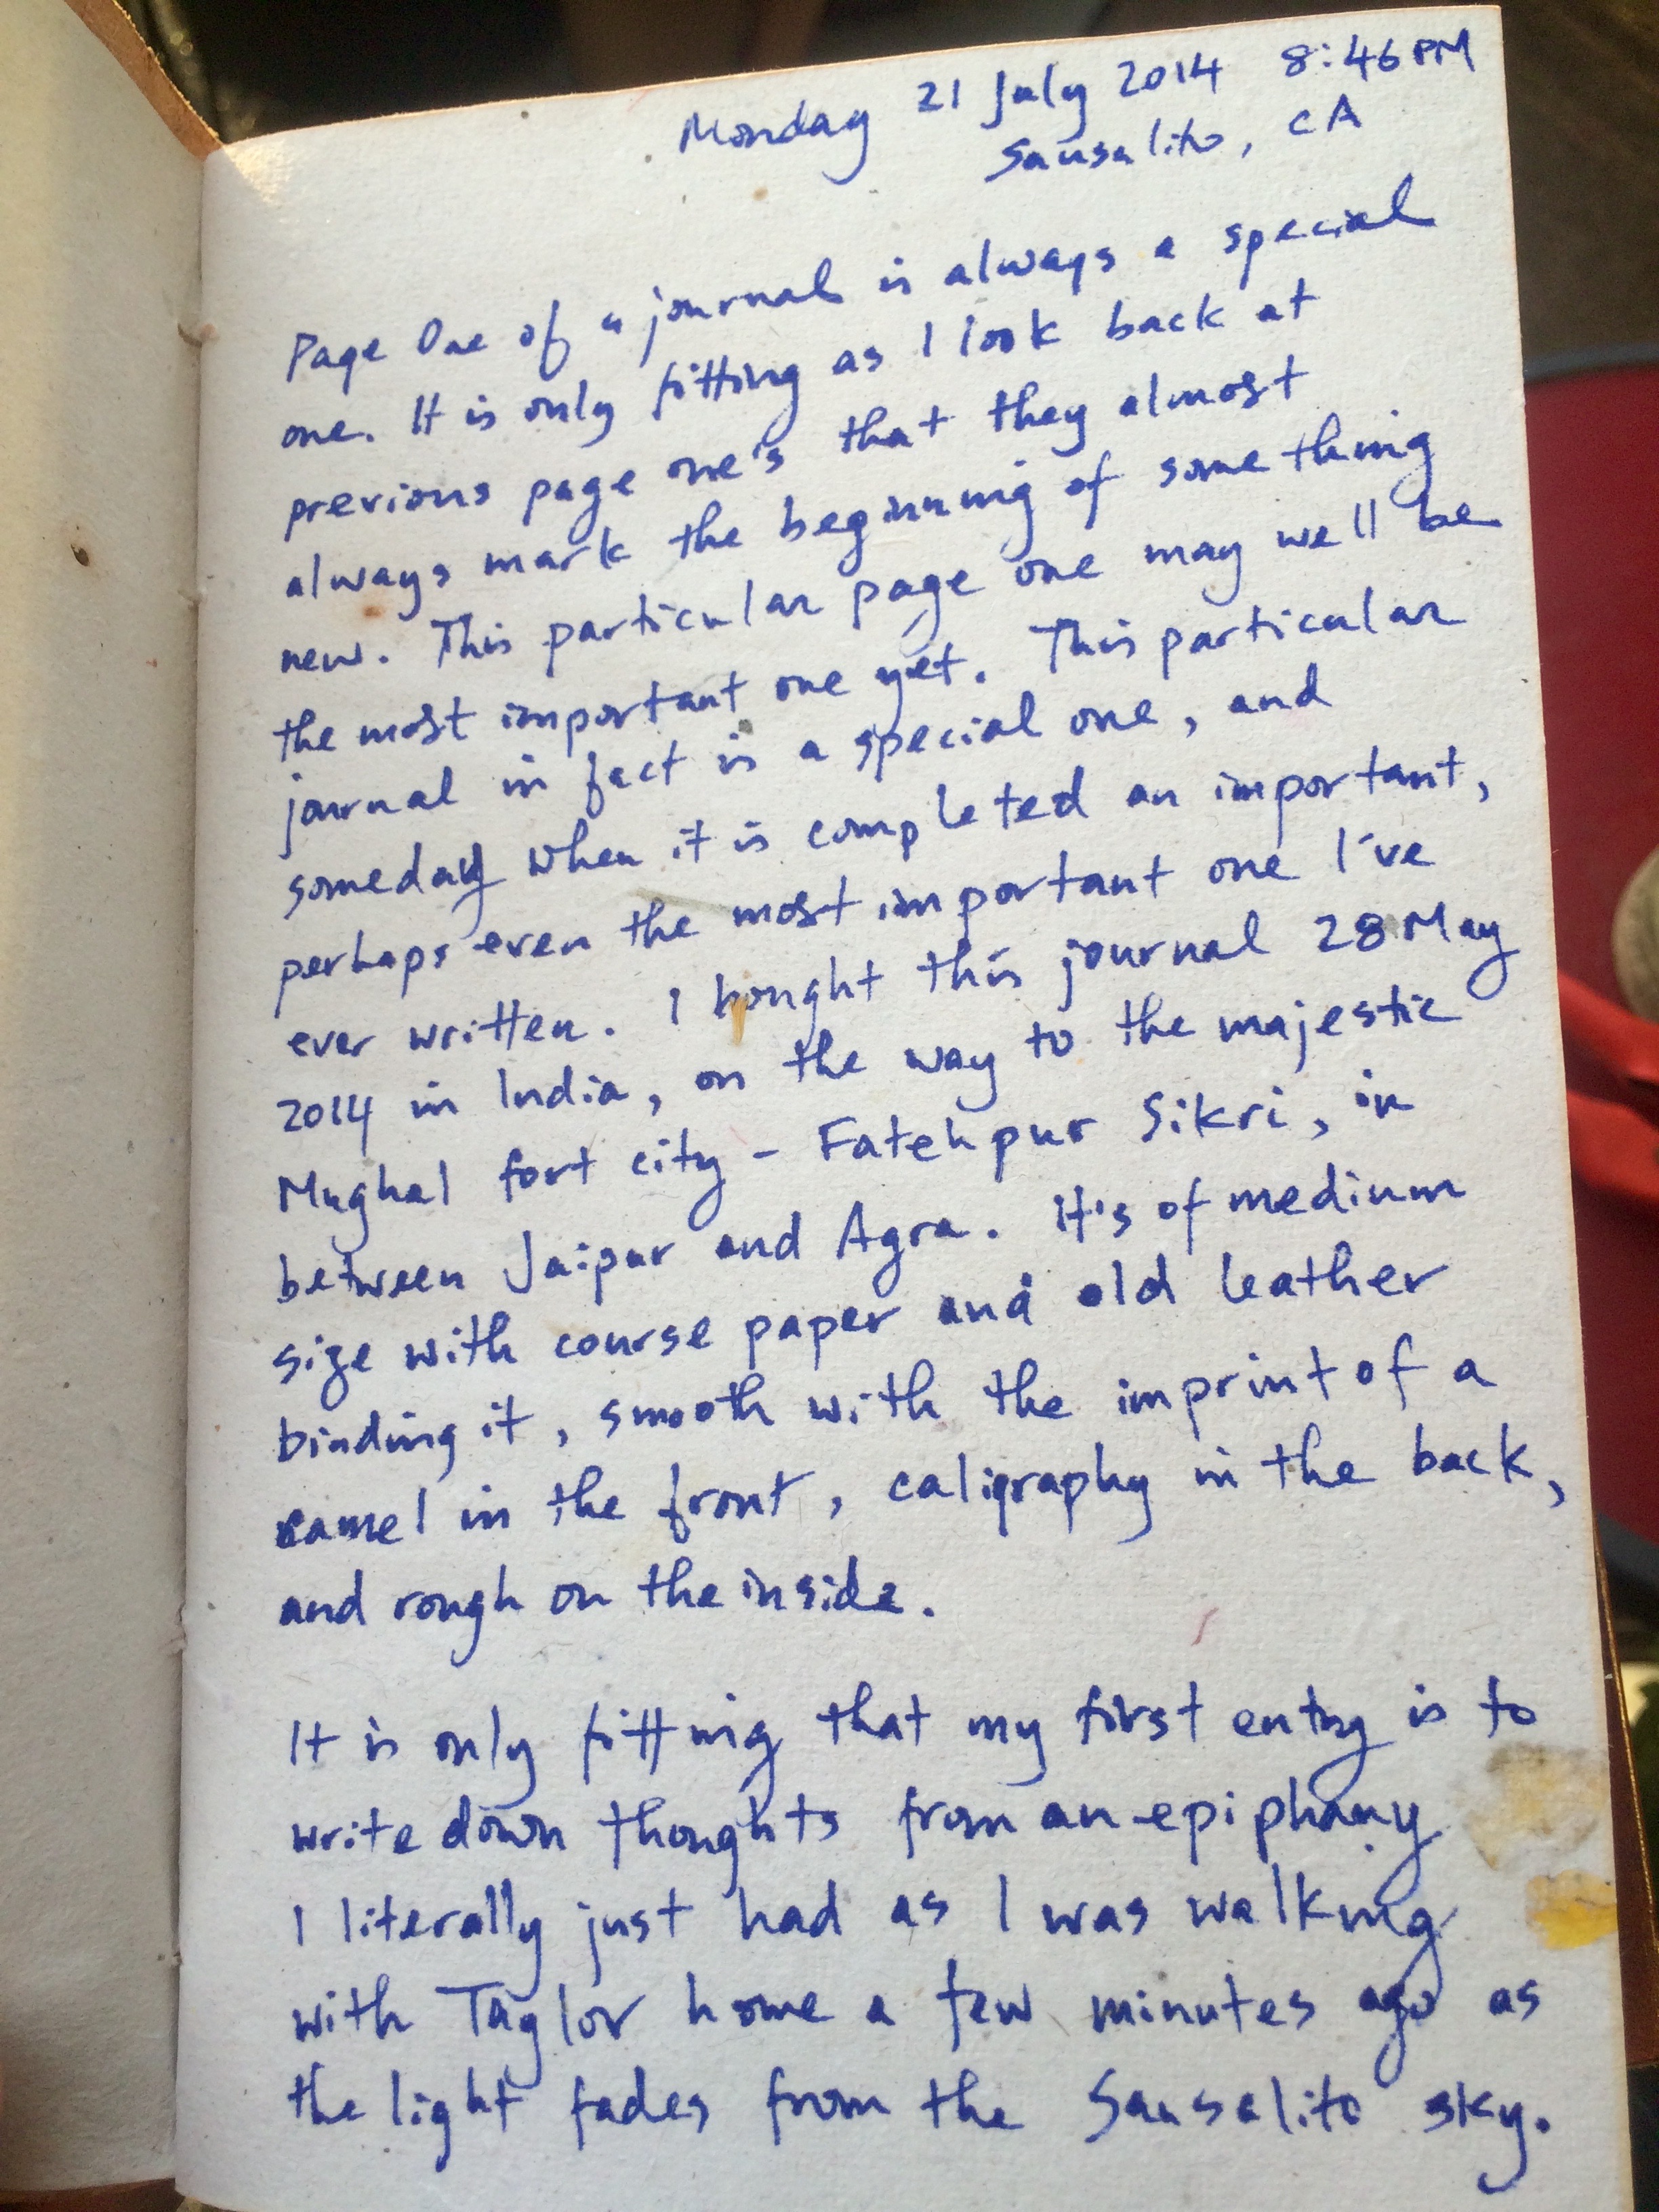 Monday 21 July 2014 8:46PM
Sausalito, CA
Page One of a journal is always a special
one. It is only fitting as I look back at
previous page one's that they almost
always mark the beginning of something
new. This particular page one may well be
the most important one yet. This particular
journal in fact is a special one, and
someday when it is completed an important,
perhaps even the most important one I've
ever written. I bought this journal 28 May
2014 in India, on the way to the majestic
Mughal fort city - Fatehpur Sikri, in
between Jaipur and Agra. It's of medium
size with course paper and old leather
binding it, smooth with the imprint of a
camel in the front, caligraphy in the back,
and rough on the inside.
It is only fitting that my first entry is to
write down thoughts from an epiphany
I literally just had as I was walking
with Taylor home a few minutes ago as
the light fades from the Sausalito sky.